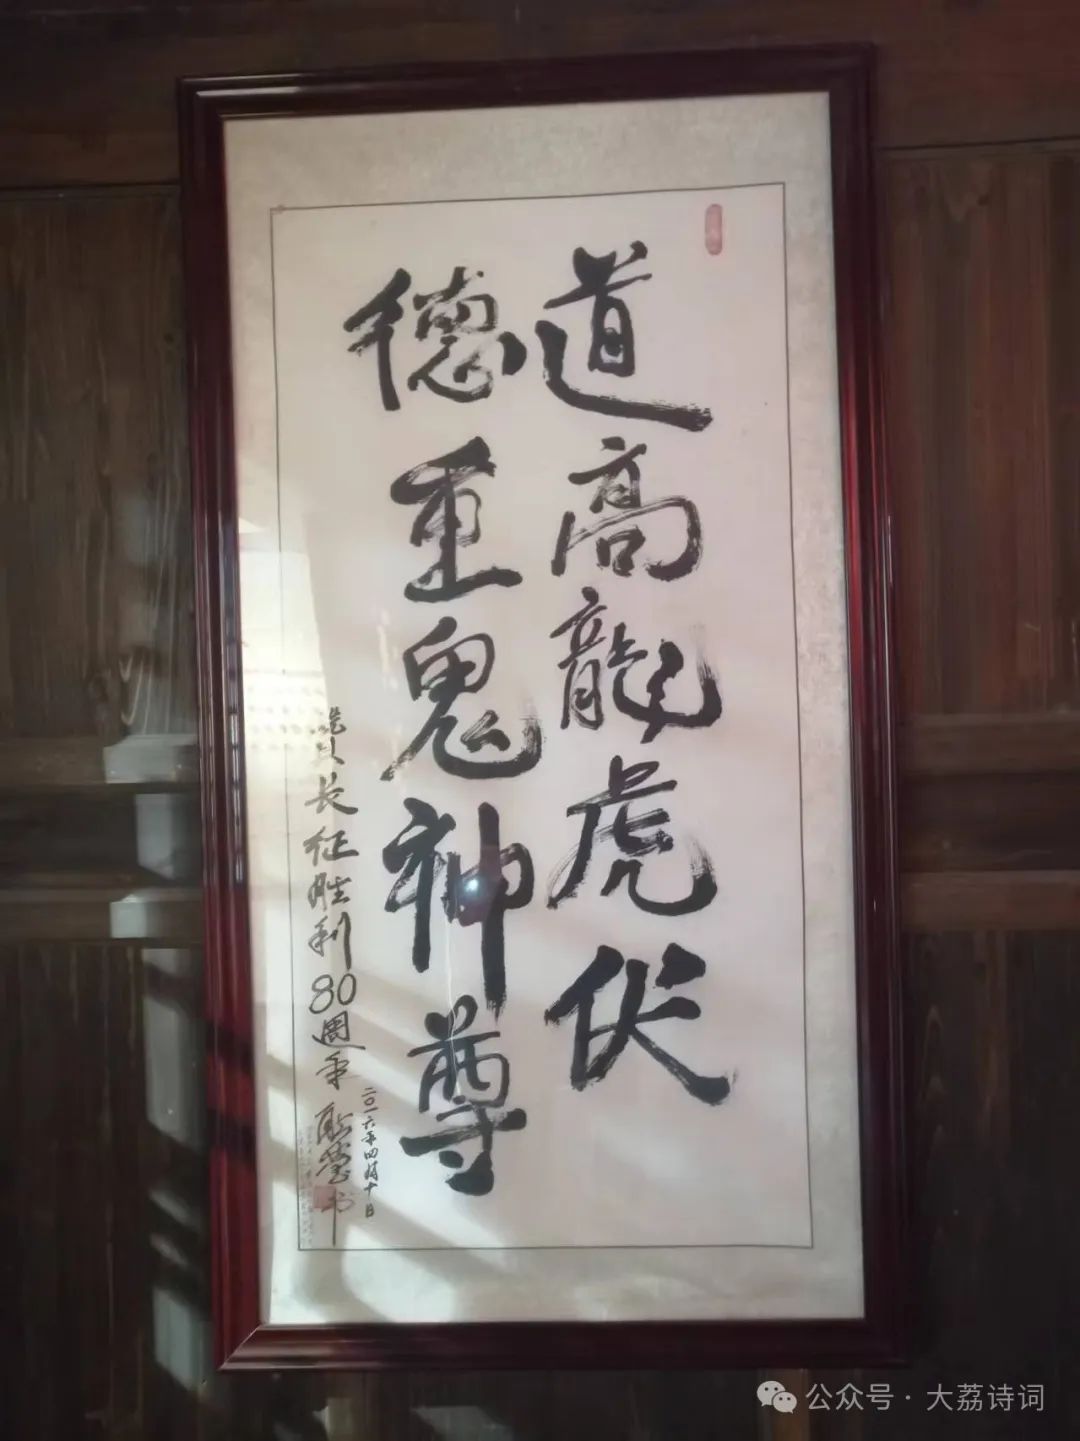 道高龍虎伏
德重鬼神尊
长征胜利80週年
书
二〇一六年四月十日
公众号·大荔诗词